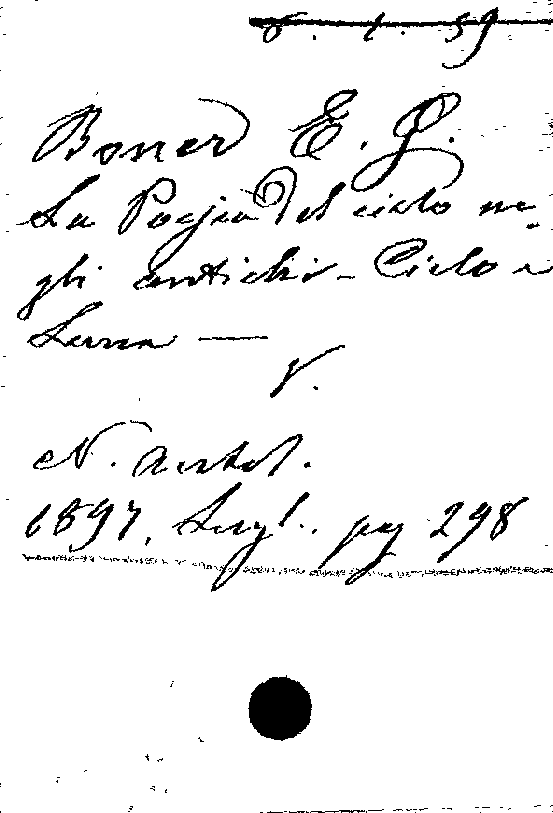 6. 1. 59
Boner E. G.
La Poesia del cielo ne-
gli antichi - Cielo e
Luna —
V.
N. Antol.
1897, Lugl. pag 298